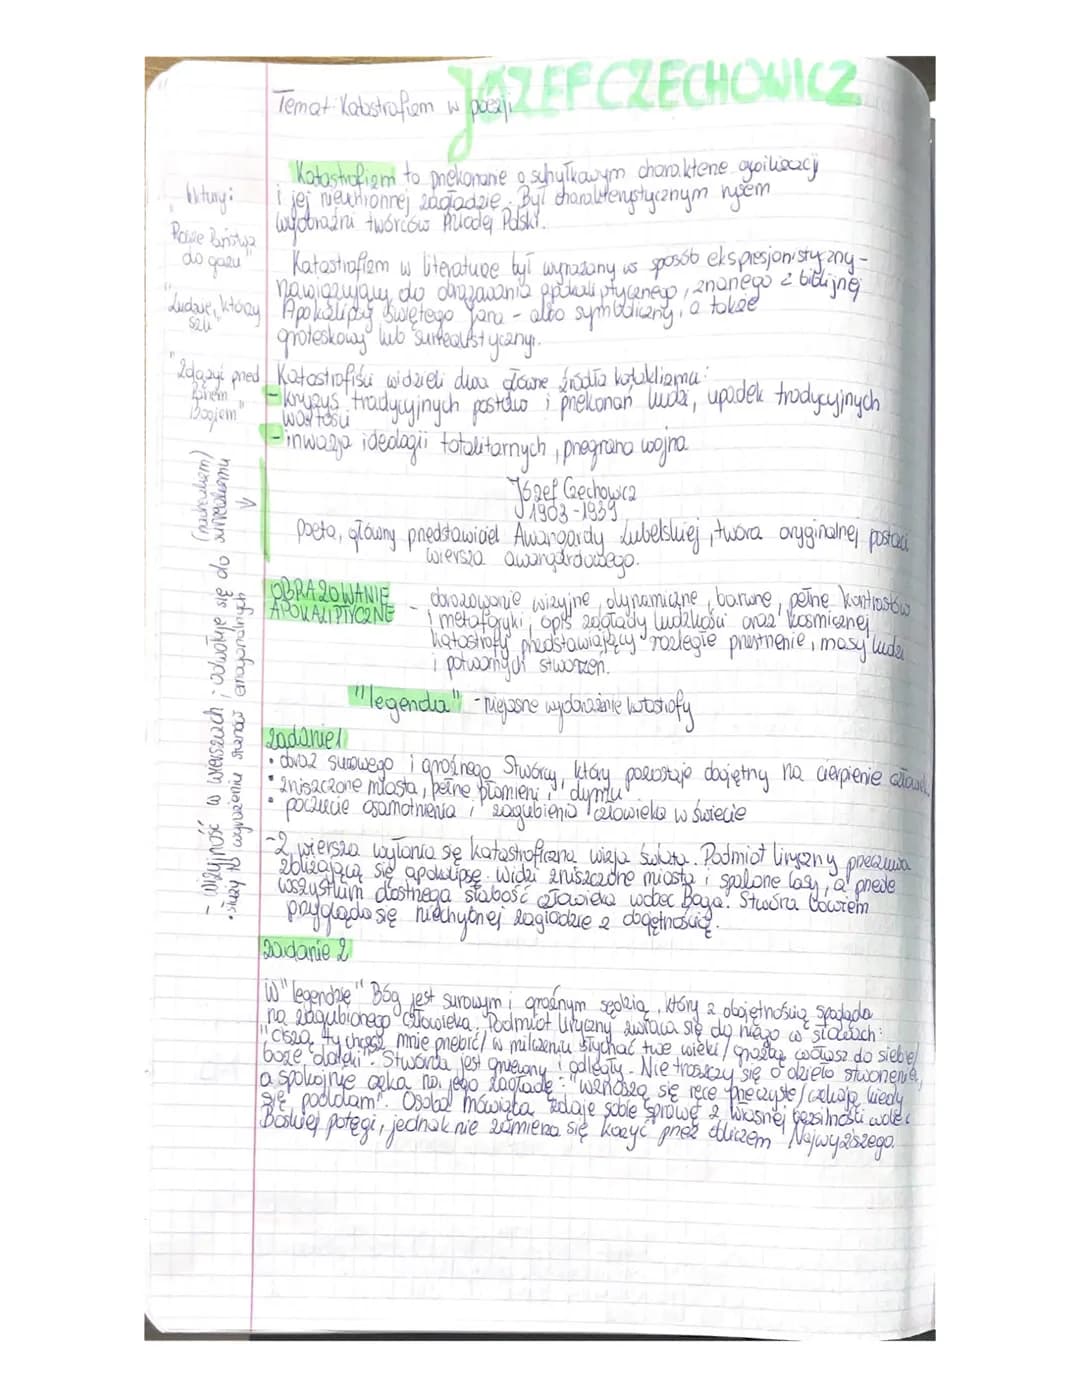 JÓZEF CZECHOWICZ
Temat: Katastrofizm w poezji
Katastrofizm to przekonanie o schyłkowym charakterze cywilizacji
i jej nieuchronnej zagładzie. Był charakterystycznym rysem
wyobraźni twórców Młodej Polski.
Katastrofizm w literaturze był wyrażany w sposób ekspresjonistyczny -
nawiązujący do obrazowania apokaliptycznego, znanego z biblijnej
Apokalipsy Świętego Jana - albo symboliczny, a także
groteskowy lub surrealistyczny.
Katastrofiści widzieli dwa główne źródła kataklizmu:
- kryzys tradycyjnych postaw i przekonań ludzi, upadek tradycyjnych
wartości
- inwazja ideologii totalitarnych, przegrana wojna
Józef Czechowicz
1903-1939
Poeta, główny przedstawiciel Awangardy Lubelskiej, twórca oryginalnej postaci
wiersza awangardowego.
OBRAZOWANIE
APOKALIPTYCZNE
- obrazowanie wizyjne, dynamiczne, barwne, pełne kontrastów
i metaforyki, opis zagłady ludzkości oraz kosmicznej
katastrofy przedstawiający rozległe przestrzenie, masy ludzi
i potwornych stworzeń.
"legenda" - niejasne wyobrażenie katastrofy
zadanie 1
• obraz surowego i groźnego Stwórcy, który pozostaje obojętny na cierpienie człowieka
• zniszczone miasta, pełne płomieni i dymu
• poczucie osamotnienia i zagubienia człowieka w świecie
- Z wiersza wyłania się katastroficzna wizja świata. Podmiot liryczny przeczuwa
zbliżającą się apokalipsę. widzi zniszczone miasta i spalone lasy, a przede
wszystkim dostrzega słabość człowieka wobec Boga. Stwórca bowiem
przygląda się niechybnej zagładzie z obojętnością.
zadanie 2
W "legendzie" Bóg jest surowym i groźnym sędzią, który z obojętnością spogląda
na zagubionego człowieka. Podmiot liryczny zwraca się do niego w słowach:
"ciszą ty chcesz mnie przebić/ w milczeniu słychać twe wieki/ groźbą wołasz do siebie/
boże daleki". Stwórca jest gniewny i odległy. Nie troszczy się o dzieło stworzenia,
a spokojnie czeka na jego zagładę: "wznoszą się ręce przeczyste/ czekają kiedy
się poddam". Osoba mówiąca zdaje sobie sprawę z własnej bezsilności wobec
Boskiej potęgi, jednak nie zamierza się korzyć przed obliczem Najwyższego.
"Proszę państwa
do gazu"
"Ludzie, którzy
szli"
"Zdążyć przed
Panem
Bogiem"
- wizyjność w wierszach; odwołuje się do (nadrealizm) surrealizmu
• służy to wyrażeniu stanów emocjonalnych